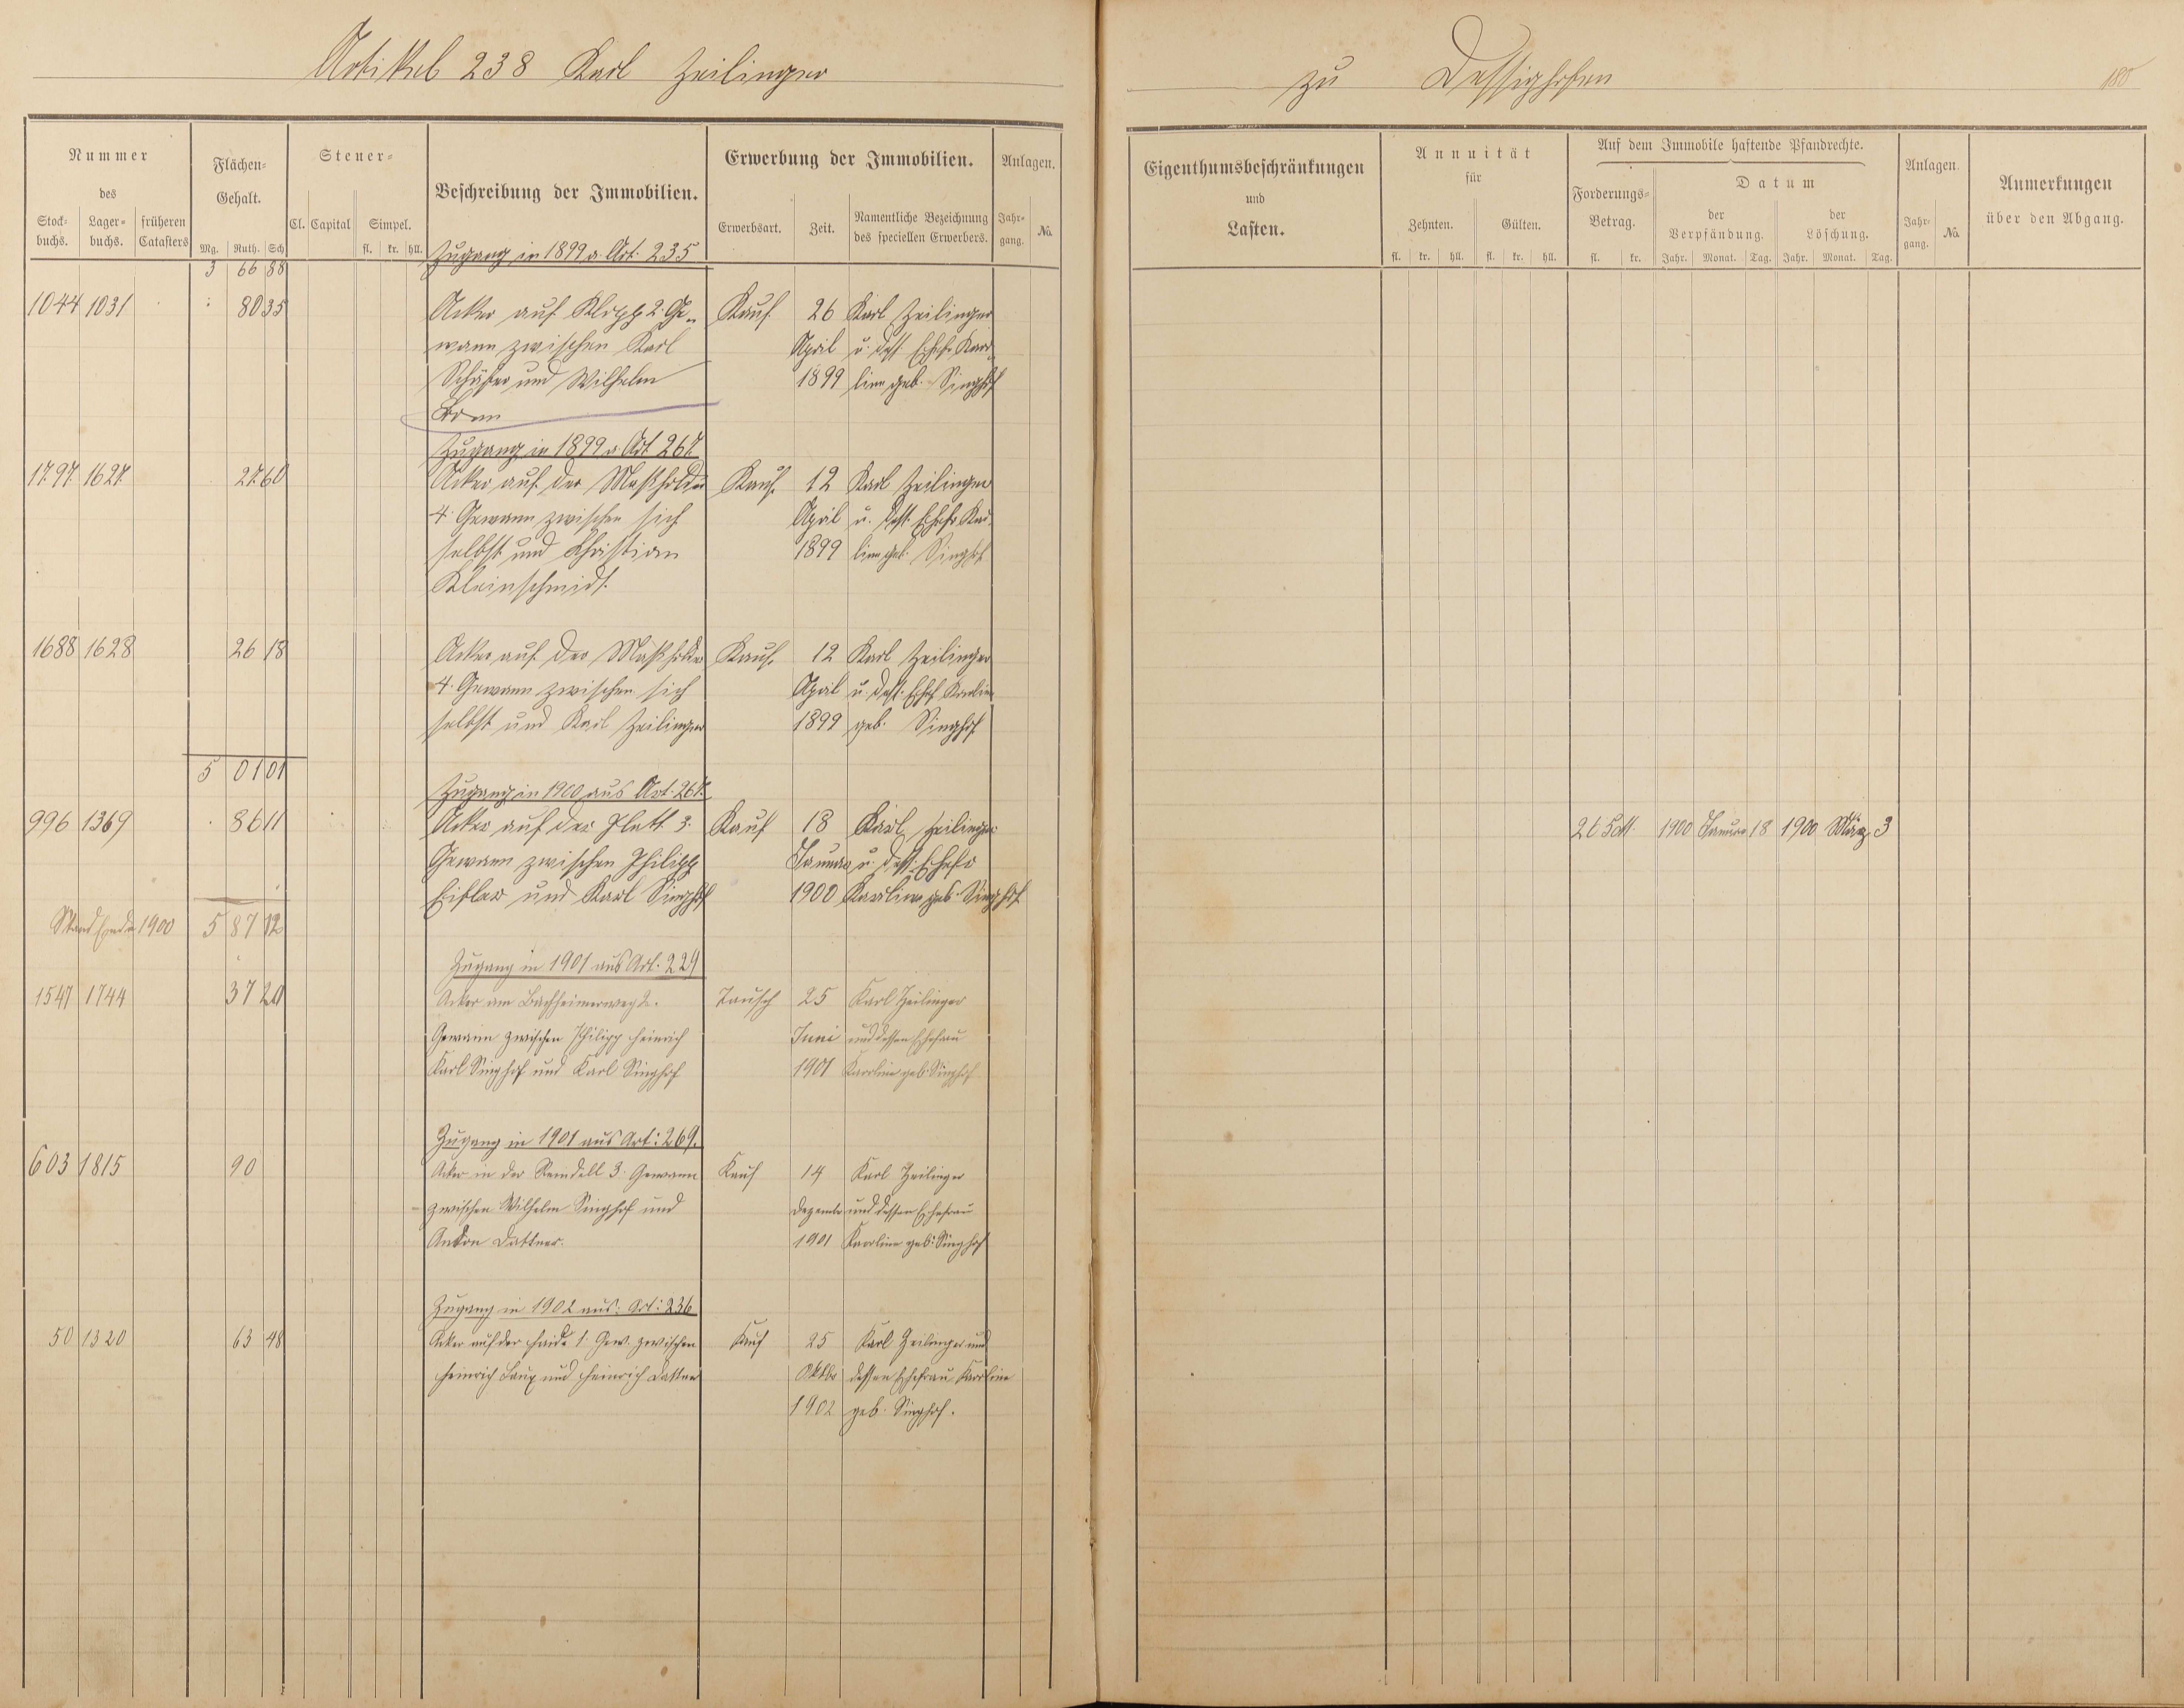 Artikel 238 Karl Zeilinger
zu Dessighofen
180
Nummer
des
Stock-buchs.
Lager-buchs.
früheren Catasters
Flächen-Gehalt.
Mg. Ruth. Sch
Steuer-
Cl. Capital Simpel.
fl. kr. hll.
Beschreibung der Immobilien.
Erwerbung der Immobilien.
Erwerbsart. Zeit. Namentliche Bezeichnung des speciellen Erwerbers.
Anlagen.
Jahr-gang. No.
Eigenthumsbeschränkungen
und
Lasten.
Annuität
für
Zehnten. Gülten.
fl. kr. hll. fl. kr. hll.
Auf dem Immobile haftende Pfandrechte.
Forderungs-Betrag.
fl. kr.
Datum
der Verpfändung. der Löschung.
Jahr. Monat. Tag. Jahr. Monat. Tag.
Anlagen.
Jahr-gang. No.
Anmerkungen
über den Abgang.
Zugang in 1899 a. Art. 235
3 66 88
1044 1031 80 35 Acker auf Klopp 2. Ge- Kauf 26 Karl Zeilinger
wann zwischen Karl April u. dess. Ehefr. Karo-
Schäfer und Wilhelm 1899 line geb. Singhof
Korn
Zugang in 1899 a. Art 267
1797 1627 27 60 Acker auf der Maßholder Kauf 12 Karl Zeilinger
4. Gewann zwischen sich April u. dess. Ehefr. Karo-
selbst und Christian 1899 line geb. Singhof
Kleinschmidt.
1688 1628 26 18 Acker auf der Maßholder Kauf 12 Karl Zeilinger
4. Gewann zwischen sich April u. dess. Ehefr. Karoline
selbst und Karl Zeilinger 1899 geb. Singhof
5 01 01
Zugang in 1900 aus Art. 267.
996 1369 86 11 Acker auf der Platt 3. Kauf 18 Karl Zeilinger 265 M. 1900 Januar 18 1900 März 3
Gewann zwischen Philipp Januar u. dess. Ehefr
und Karl Singhof 1900 Karoline geb. Singhof
Stand Ende 1900 5 87 12
Zugang in 1901 aus Art. 229
1547 1744 37 20 Acker am Bachheimerweg 2. Tausch 25 Karl Zeilinger
Gewann zwischen Philipp Heinrich Juni und dessen Ehefrau
Karl Singhof und Karl Singhof 1901 Karoline geb. Singhof
Zugang in 1901 aus Art: 269.
603 1815 90 Acker in der 3. Gewann Kauf 14 Karl Zeilinger
zwischen Wilhelm Singhof und Dezember und dessen Ehefrau
Anton Dattner. 1901 Karoline geb. Singhof
Zugang in 1902 aus: Art: 236
50 1320 63 48 Acker auf der Haide 1. Gew. zwischen Kauf 25 Karl Zeilinger und
Heinrich Laux und Heinrich Dattner Oktbr dessen Ehefrau Karoline
1902 geb. Singhof.